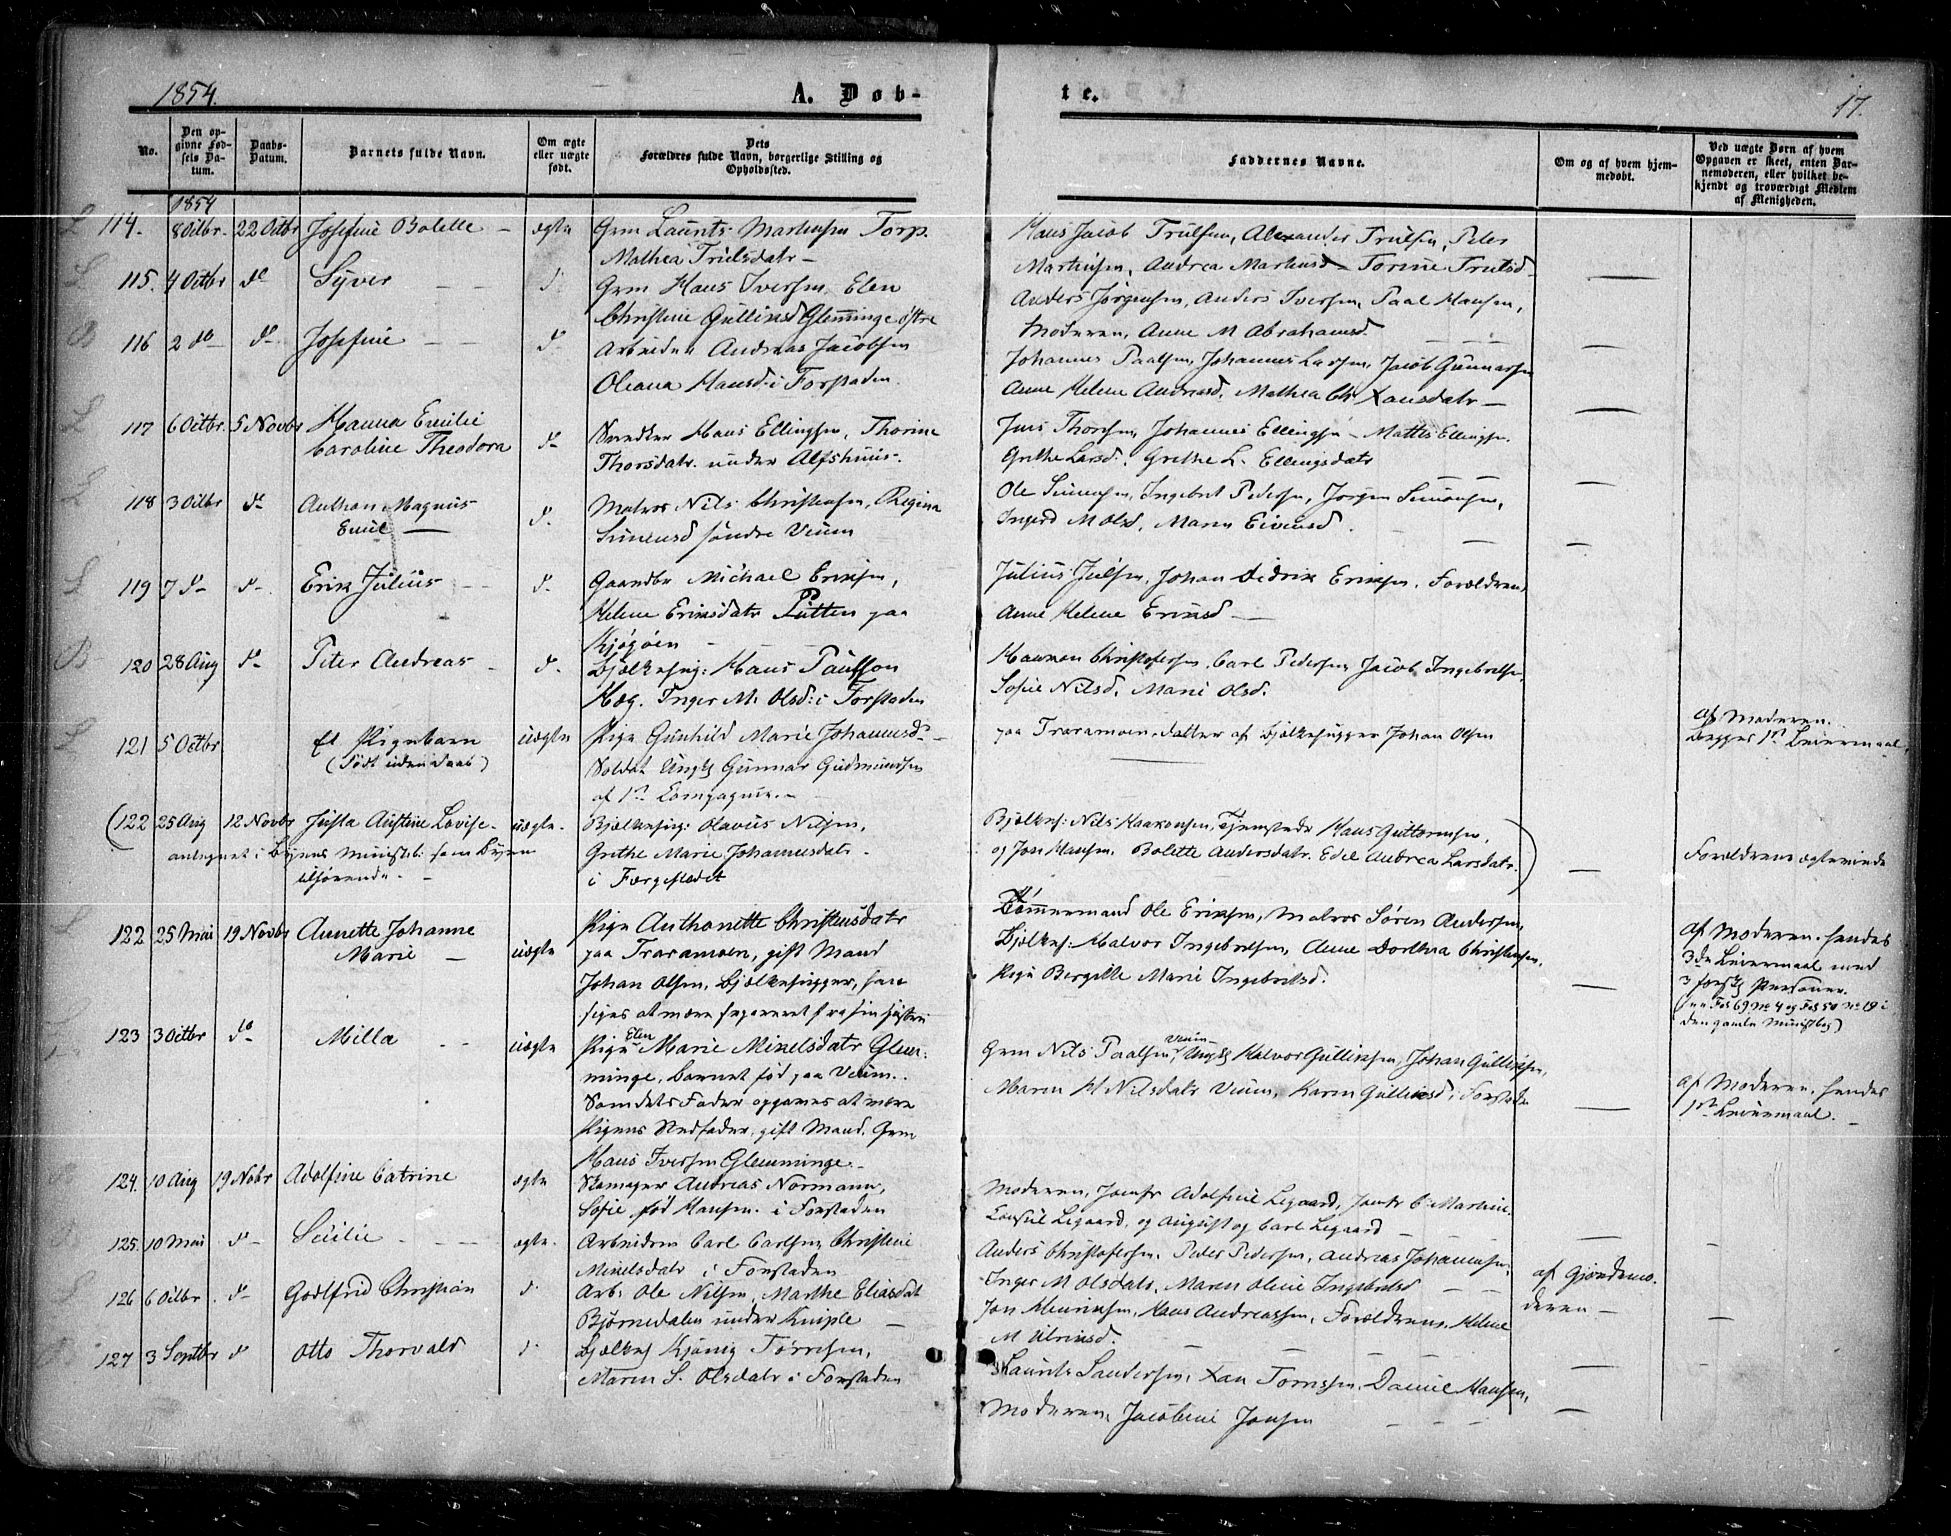 1854.
A. Døb-
te.
17.
No.
Den op-
givne Fød-
sels Da-
tum.
Daabs-
Datum.
Barnets fulde Navn.
Om ægte
eller uægte
født.
Dets
Forældres fulde Navn, borgerlige Stilling og
Opholdssted.
Faddernes Navne.
Om og af hvem hjem-
medøbt.
Ved uægte Børn af hvem
Opgaven er skeet, enten Bar-
nemoderen, eller hvilket be-
kjendt og troværdigt Medlem
af Menigheden.
1854
L 114. 8 Octbr. 22 Octbr Josefine Bolette - ægte Grm Laurits Martinsen Torp.
Mathea Trulsdatr -
Hans Jacob Trulsen, Alexander Trulsen, Peter
Martinsen, Andrea Martinsd - Torine Trulsd -
L 115. 4 Octbr do Syver - - d Grm Hans Iversen, Elen
Christine Gulliksd Glemminge østre
Anders Jørgensen, Anders Iversen, Paal Hansen,
Moderen, Anne M Abrahamsd.
B 116 2 do d- Josefine - - d. Arbeider Andreas Jacobsen
Oleana Hansd. i Forstaden.
Johannes Paalsen, Johannes Larsen, Jacob Gunnarsen
Anne Helene Andreasd. Mathea Ch
L 117 6 Octbr. 5 Novbr Hanna Emilie
Caroline Theodora d- Snedker Hans Ellingsen, Thorine
Thorsdatr. under Alfshuus.
Jens Thoresen, Johannes Ellingsen - Mathis Ellingsen.
Grethe Larsd. Grethe L. Ellingsdatr
L 118 3 Octbr d- Anthon Magnus
Emil - d. Matros Nils Christensen, Regina
Simensd søndre Veum
Ole Simensen, Ingebret Pedersen, Jørgen Simonsen,
Ingerd M Olsd, Maren Eivensd.
L 119 7 d- d-. Erik Julius - - d. Gaardbr Michael Eriksen,
Helene Eriksdatr Putten paa
Kjøgøen -
Julius Juelsen, Johan Didrik Eriksen. Forældrene,
Anne Helene Eriksd. -
B 120 28 Aug d- Peter Andreas - d. Bjelkehug: Hans Paulson
Hæg. Inger M. Olsd: i Forstaden
Hauman Christofersen, Carl Pedersen, Jacob Ingebretsen.
Sofie Nilsd, Marie Olsd.
L 121 5 Octbr et Pigebarn
(Født uden Daab) uægte Pige Gunhild Marie Johannesd. -
Soldat Ungk Gunnar Gudmundsen
af 1ste Compagnie. -
paa Traramoen, datter af Bjelkehugger Johan Olsen
af Moderen.
Begges 1ste Leiermaal.
(122 25 Aug 12 Novbr Justa Austine Lovise. uægte. Bjelkehug: Olavus Nilsen,
antegnet i Byens Ministeb: som Byen
tilhørende. -
Grethe Marie Johannesdatr.
i Færgestedet
Bjelkeh: Nils Haakonsen, Tjenstedr Hans Guttormsen,
og Jon Hansen. Bolette Andersdatr. Edel Andrea Larsdatr.)
Forældrene ægteviede
L 122 25 Mai 19 Novbr Annette Johanne
Marie - uægte Pige Anthonette Christensdatr
paa Traramoen, gift Mand
Johan Olsen, Bjelkehugger, som
siges at være separeret fra sin Hustru
Tømmermand Ole Eriksen, Matros Søren Andersen,
Bjelkeh: Halvor Ingebretsen, Anne Dorthea Christensen,
Pige Bergitte Marie Ingebritsd.
af Moderen. hendes
3die Leiermaal med
3 forskj Personer.
(Fol 69 No 4 og Fol 50 No 19 i
den gamle Ministbog)
123 3 Octbr do Milla - - uægte Pige Elen Marie Mikelsdatr Glem-
minge, Barnet fød paa Veum.
Som dets Fader opgaves at være
Pigens Stedfader, gift Mand. Grm
Hans Iversen Glemminge. -
Grm Nils Paalsen Veum Ungk Halvor Gulliksen, Johan Gulliksen,
Maren H Nilsdatr Veum, Karen Gulliksd. i Forstaden
af Moderen, hendes
1ste Leiermaal. -
124. 10 Aug 19 Nobr Adolfine Catrine ægte Skomager Andreas Normann,
Sofie fød Hansen. i Forstaden
Moderen, Jomfr Adolfine Legaard, Jomfr C. Martine.
Consul Legaard, og August og Carl Legaard -
125. 10 Mai d - Sesilie - - - ægte. Arbeideren Carl Carlsen, Christine
Mikelsdatr i Forstaden
Anders Christofersen. Peder Pedersen, Andreas Johannesen,
Inger M Olsdatr, Maren Oline Ingebretsd - -
126 6 Octbr. d- Godtfred Christian d. Arb: Ole Nilsen, Marthe Eliasdat
Bjørnedalen under Kniple -
Jon Henriksen, Hans Andreassen, Forældrene, Helene
M Ulriksd.
af Gjordemo-
deren -
127 3 Septbr d Otto Thorvald d. Bjelkeh Kjønig Torresen,
Maren S. Olsdatr i Forstaden
Laurits Sandersen, Daniel Hansen,
Moderen, Jacobine Jonsen - - -